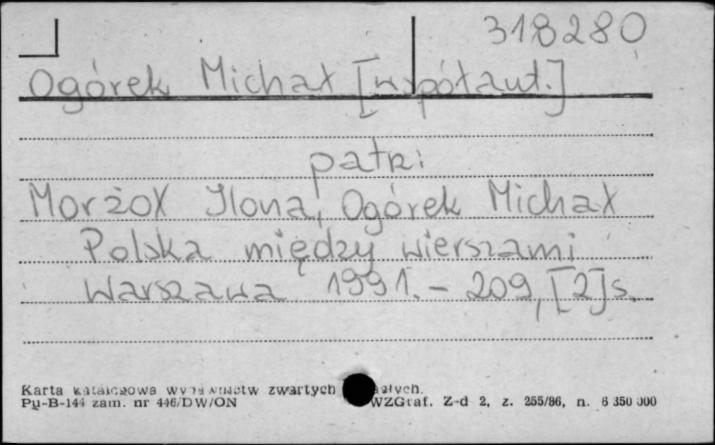 318280
Ogórek Michał [współaut.]
patrz:
Morżoł Ilona, Ogórek Michał
Polska między wierszami
Warszawa 1991. – 209, [2] s.
Karta katalogowa wydawnictw zwartych
Pu-B-144 zam. nr 446/DW/ON WZGraf. Z-d 2, z. 255/86, n. 6 350 000